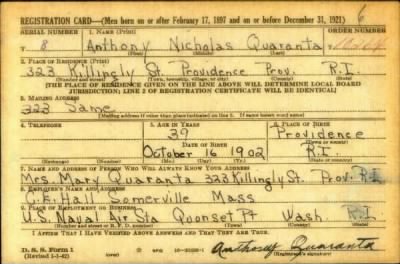 REGISTRATION CARD—(Men born on or after February 17, 1897 and on or before December 31, 1921) 6
SERIAL NUMBER 1. NAME (Print) ORDER NUMBER
8 Anthony Nicholas Quaranta
(First) (Middle) (Last)
2. PLACE OF RESIDENCE (Print)
323 Killingly St. Providence Prov. R.I.
(Number and street) (Town, township, village, or city) (County) (State)
[THE PLACE OF RESIDENCE GIVEN ON THE LINE ABOVE WILL DETERMINE LOCAL BOARD
JURISDICTION; LINE 2 OF REGISTRATION CERTIFICATE WILL BE IDENTICAL]
3. MAILING ADDRESS
323 Same
[Mailing address if other than place indicated on line 2. If same insert word same]
4. TELEPHONE 5. AGE IN YEARS 6. PLACE OF BIRTH
39 Providence
DATE OF BIRTH (Town or county)
October 16 1902 R.I.
(Exchange) (Number) (Mo.) (Day) (Yr.) (State or country)
7. NAME AND ADDRESS OF PERSON WHO WILL ALWAYS KNOW YOUR ADDRESS
Mrs. Mary Quaranta 323 Killingly St. Prov. R.I.
8. EMPLOYER'S NAME AND ADDRESS
C.E. Hall Somerville Mass
9. PLACE OF EMPLOYMENT OR BUSINESS
U.S. Naval Air Sta Quonset Pt Wash. R.I.
(Number and street or R. F. D. number) (Town) (County) (State)
I AFFIRM THAT I HAVE VERIFIED ABOVE ANSWERS AND THAT THEY ARE TRUE.
D. S. S. Form 1
(Revised 1-1-42) (over) Anthony Quaranta
(Registrant's signature)